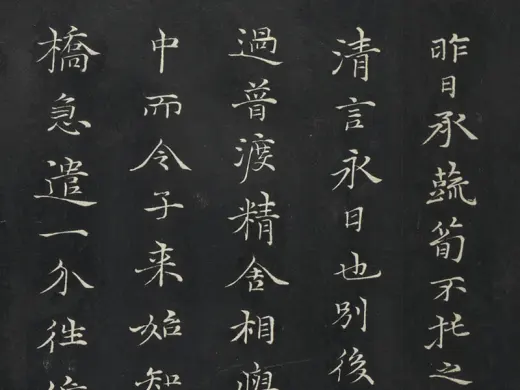 昨日承蔬筍不托之
清言永日也別後
過普渡精舍相
中而令子来始知
橋急遣一介往